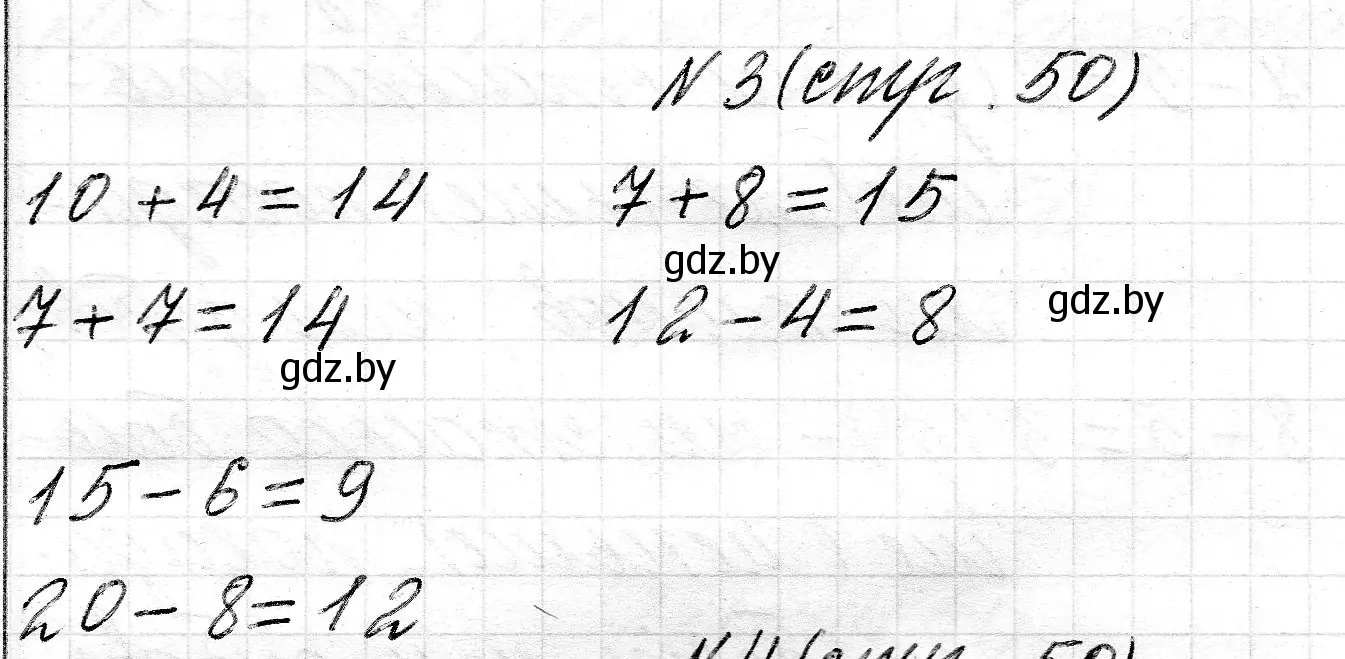 N 3 (стр. 50)
10 + 4 = 14 7 + 8 = 15
gdz.by
7 + 7 = 14 12 - 4 = 8 gdz.by
gdz.by
15 - 6 = 9
20 - 8 = 12
N 4 (стр. 50)